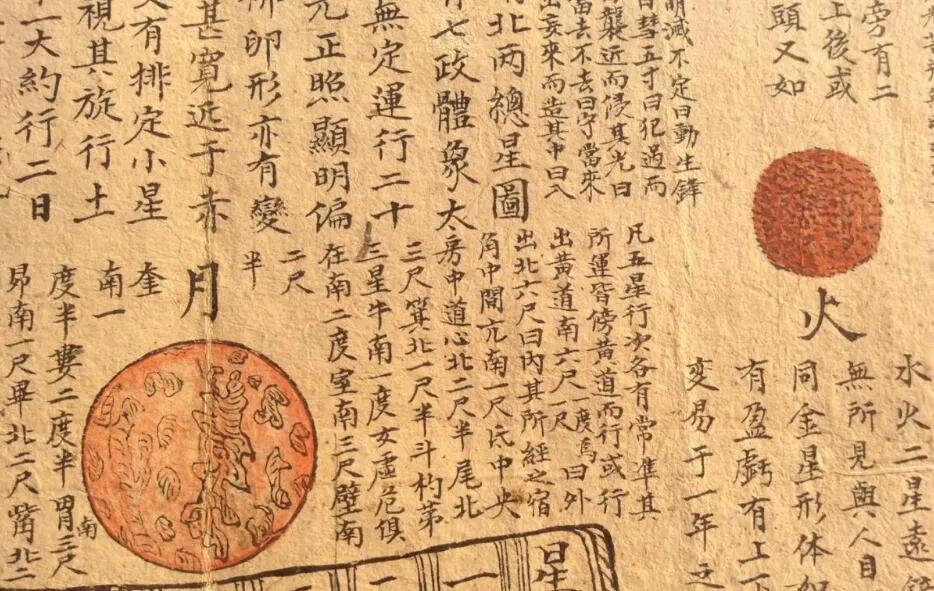 旁有二
上後或
頭又如
萌滅不定曰動生鋒
曰彗五寸曰犯過而
襲近而侵其光曰
當去不去曰守當來
出妄來而造其中曰入
北两總星圖
有七政體象太
無定運行二十
元正照顯明偏
排卵形亦有變
甚寬远于赤
又有排定小星
視其旋行土
一大約行二日
火
水火二星遠
無所見與人目
同金星形体如
有盈虧有上下
变易于一年之
凡五星行次各有常準其
所運皆傍黃道而行或行
出黃道南六尺一度爲曰外
出北六尺曰内其所經之宿
角中間亢南一尺氐中央
房中道心北二尺半尾北
三尺箕北一尺半斗杓苐
三星牛南一度女虛危俱
在南二度室南三尺壁南
二尺
半
月
奎
南一
度半婁二度半胃南三尺
昴南一尺畢北二尺觜北二
星
一
一